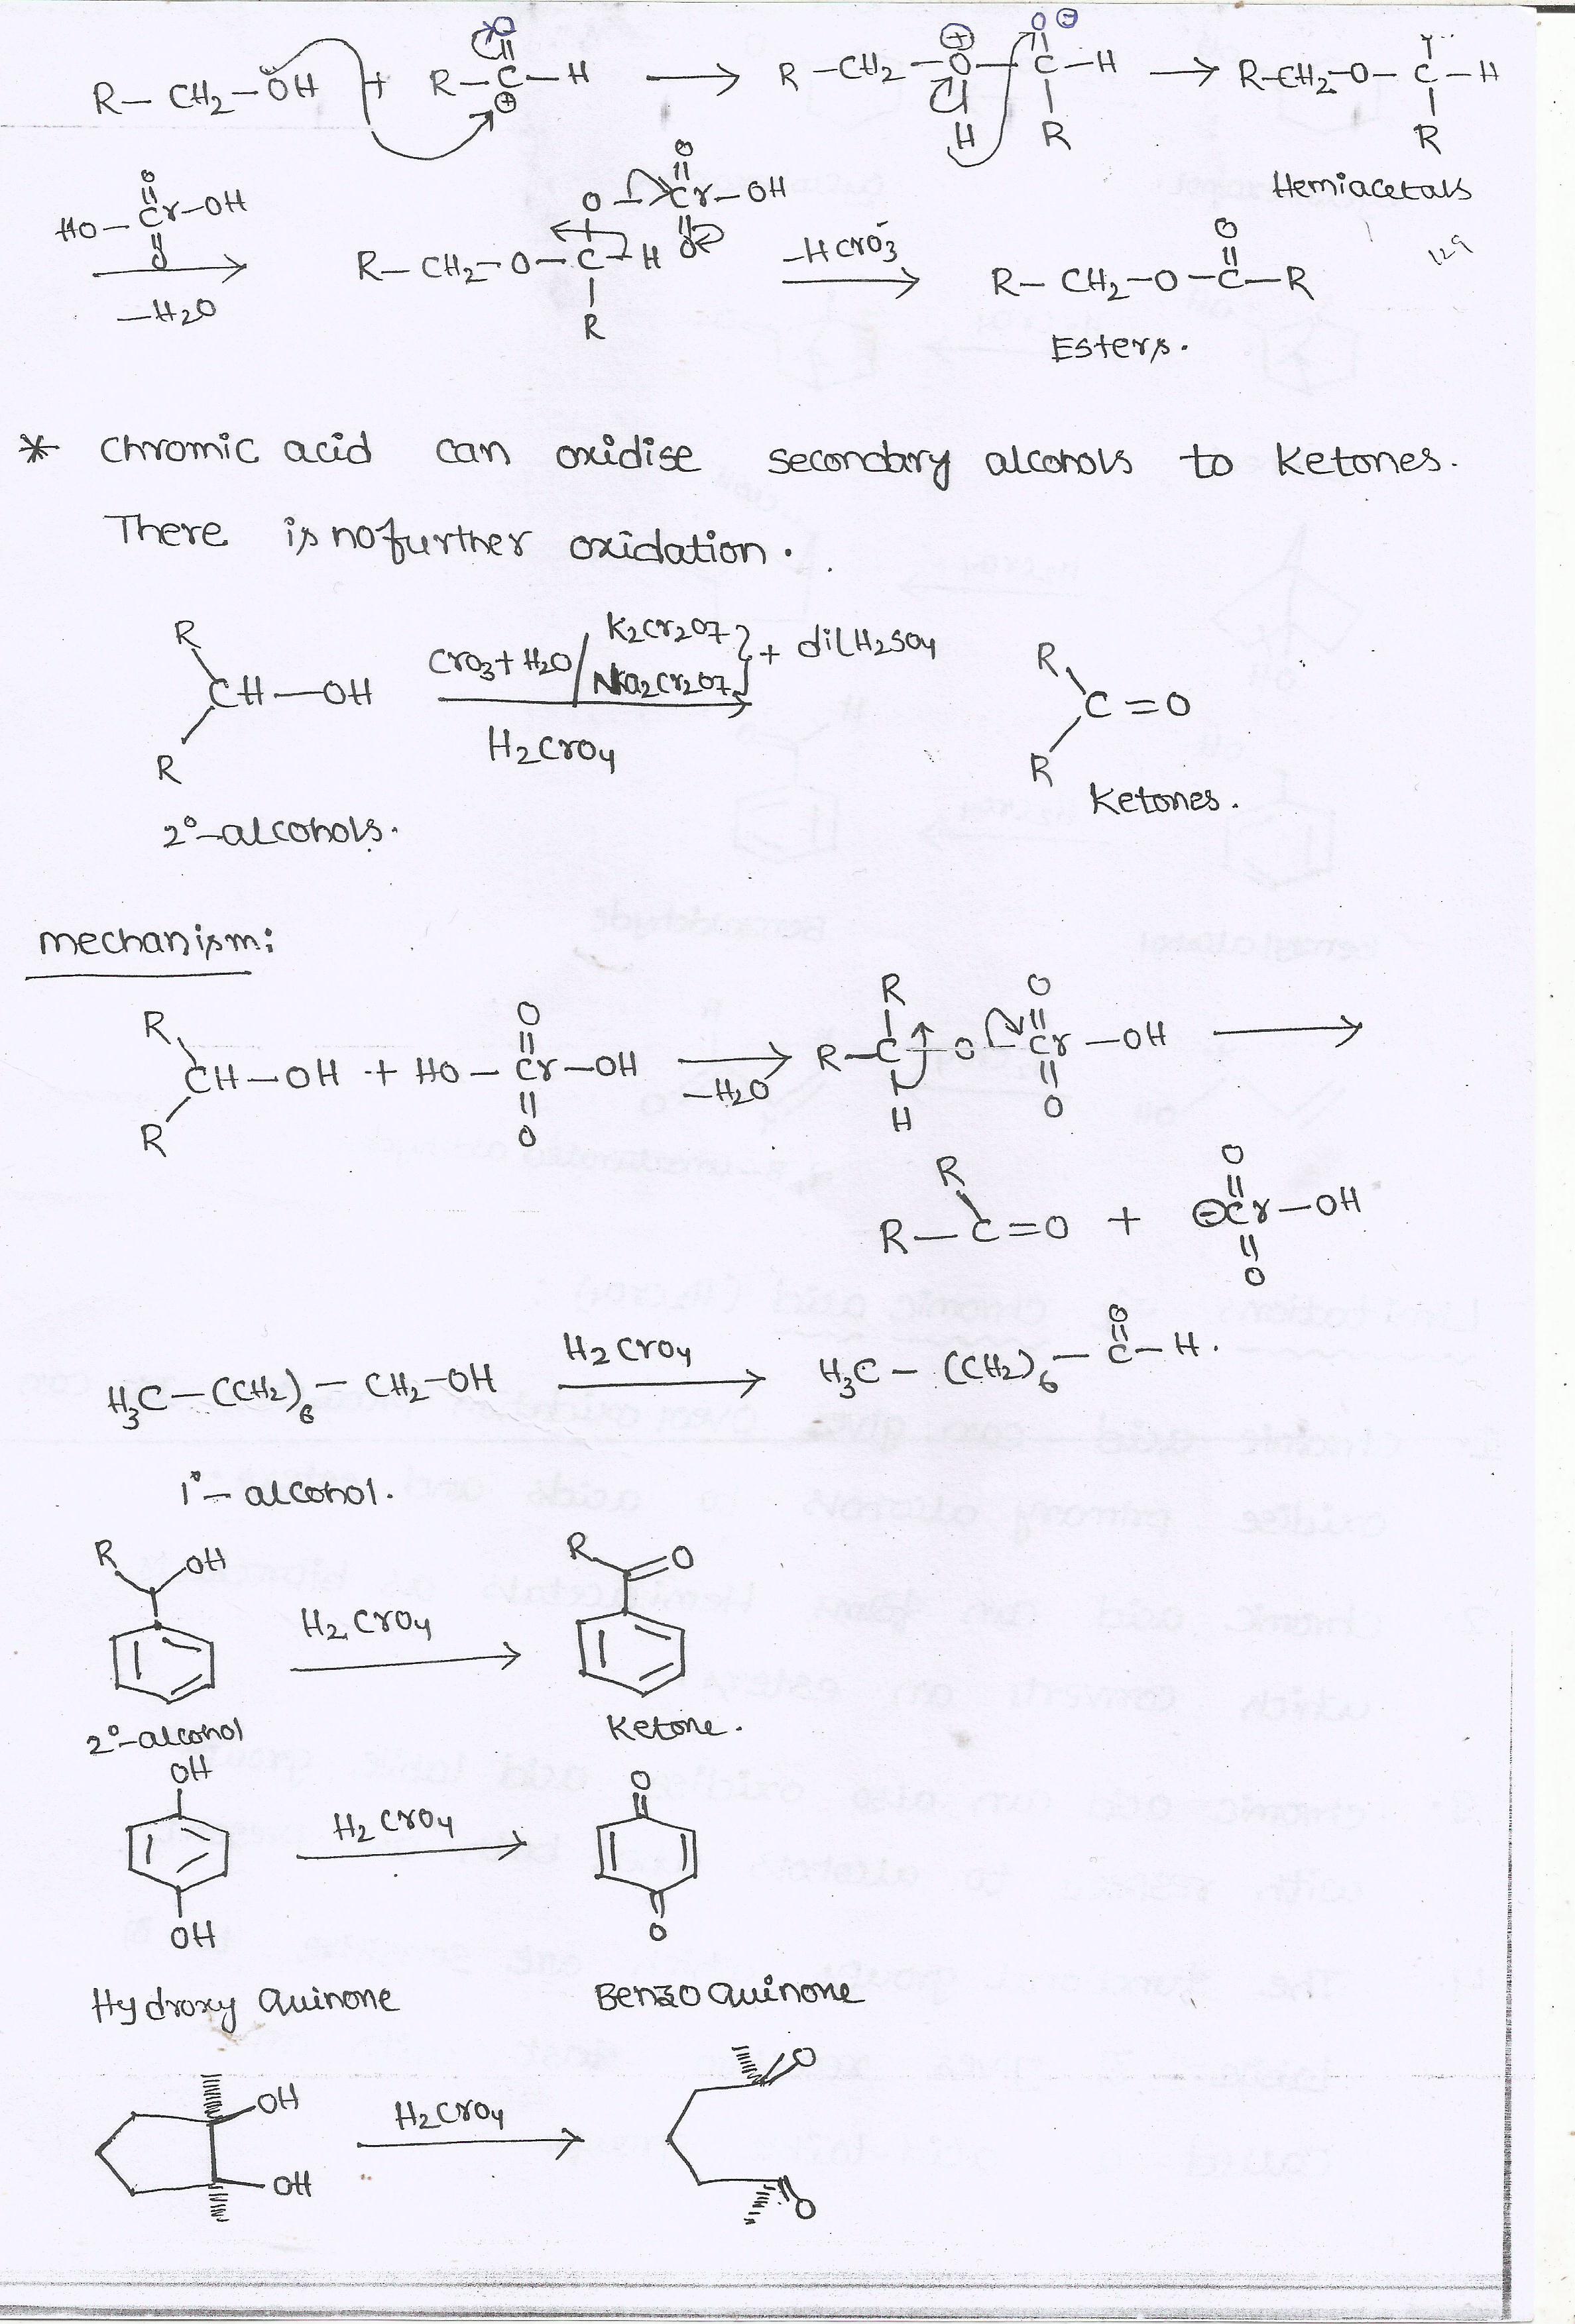 R–CH₂–ÖH + R–C(=O)–H ⟶ R–CH₂–O⊕(H)–C(=O⊖)(R)–H ⟶ R–CH₂–O–C(R)–H
Hemiacetals
HO–Cr(=O)(=O)–OH
–H₂O
R–CH₂–O–C(R)(H)–O–Cr(=O)(=O)–OH
–HCrO₃⁻
R–CH₂–O–C(=O)–R
129
Esters.
* Chromic acid can oxidise secondary alcohols to Ketones.
There is no further oxidation.
R R CH–OH CrO₃+H₂O / K₂Cr₂O₇ Na₂Cr₂O₇ } + dil H₂SO₄ R R C=O
H₂CrO₄
2°-alcohols. Ketones.
mechanism:
R R CH–OH + HO–Cr(=O)(=O)–OH ⟶ –H₂O R–C(R)(H)–O–Cr(=O)(=O)–OH ⟶
R–C(R)=O + ⊖Cr(=O)(=O)–OH
H₃C–(CH₂)₆–CH₂–OH H₂CrO₄ ⟶ H₃C–(CH₂)₆–C(=O)–H.
1°–alcohol.
R OH H₂CrO₄ R O
2°-alcohol Ketone.
OH O
H₂CrO₄
OH O
Hydroxy Quinone Benzo Quinone
OH H₂CrO₄ O
OH O